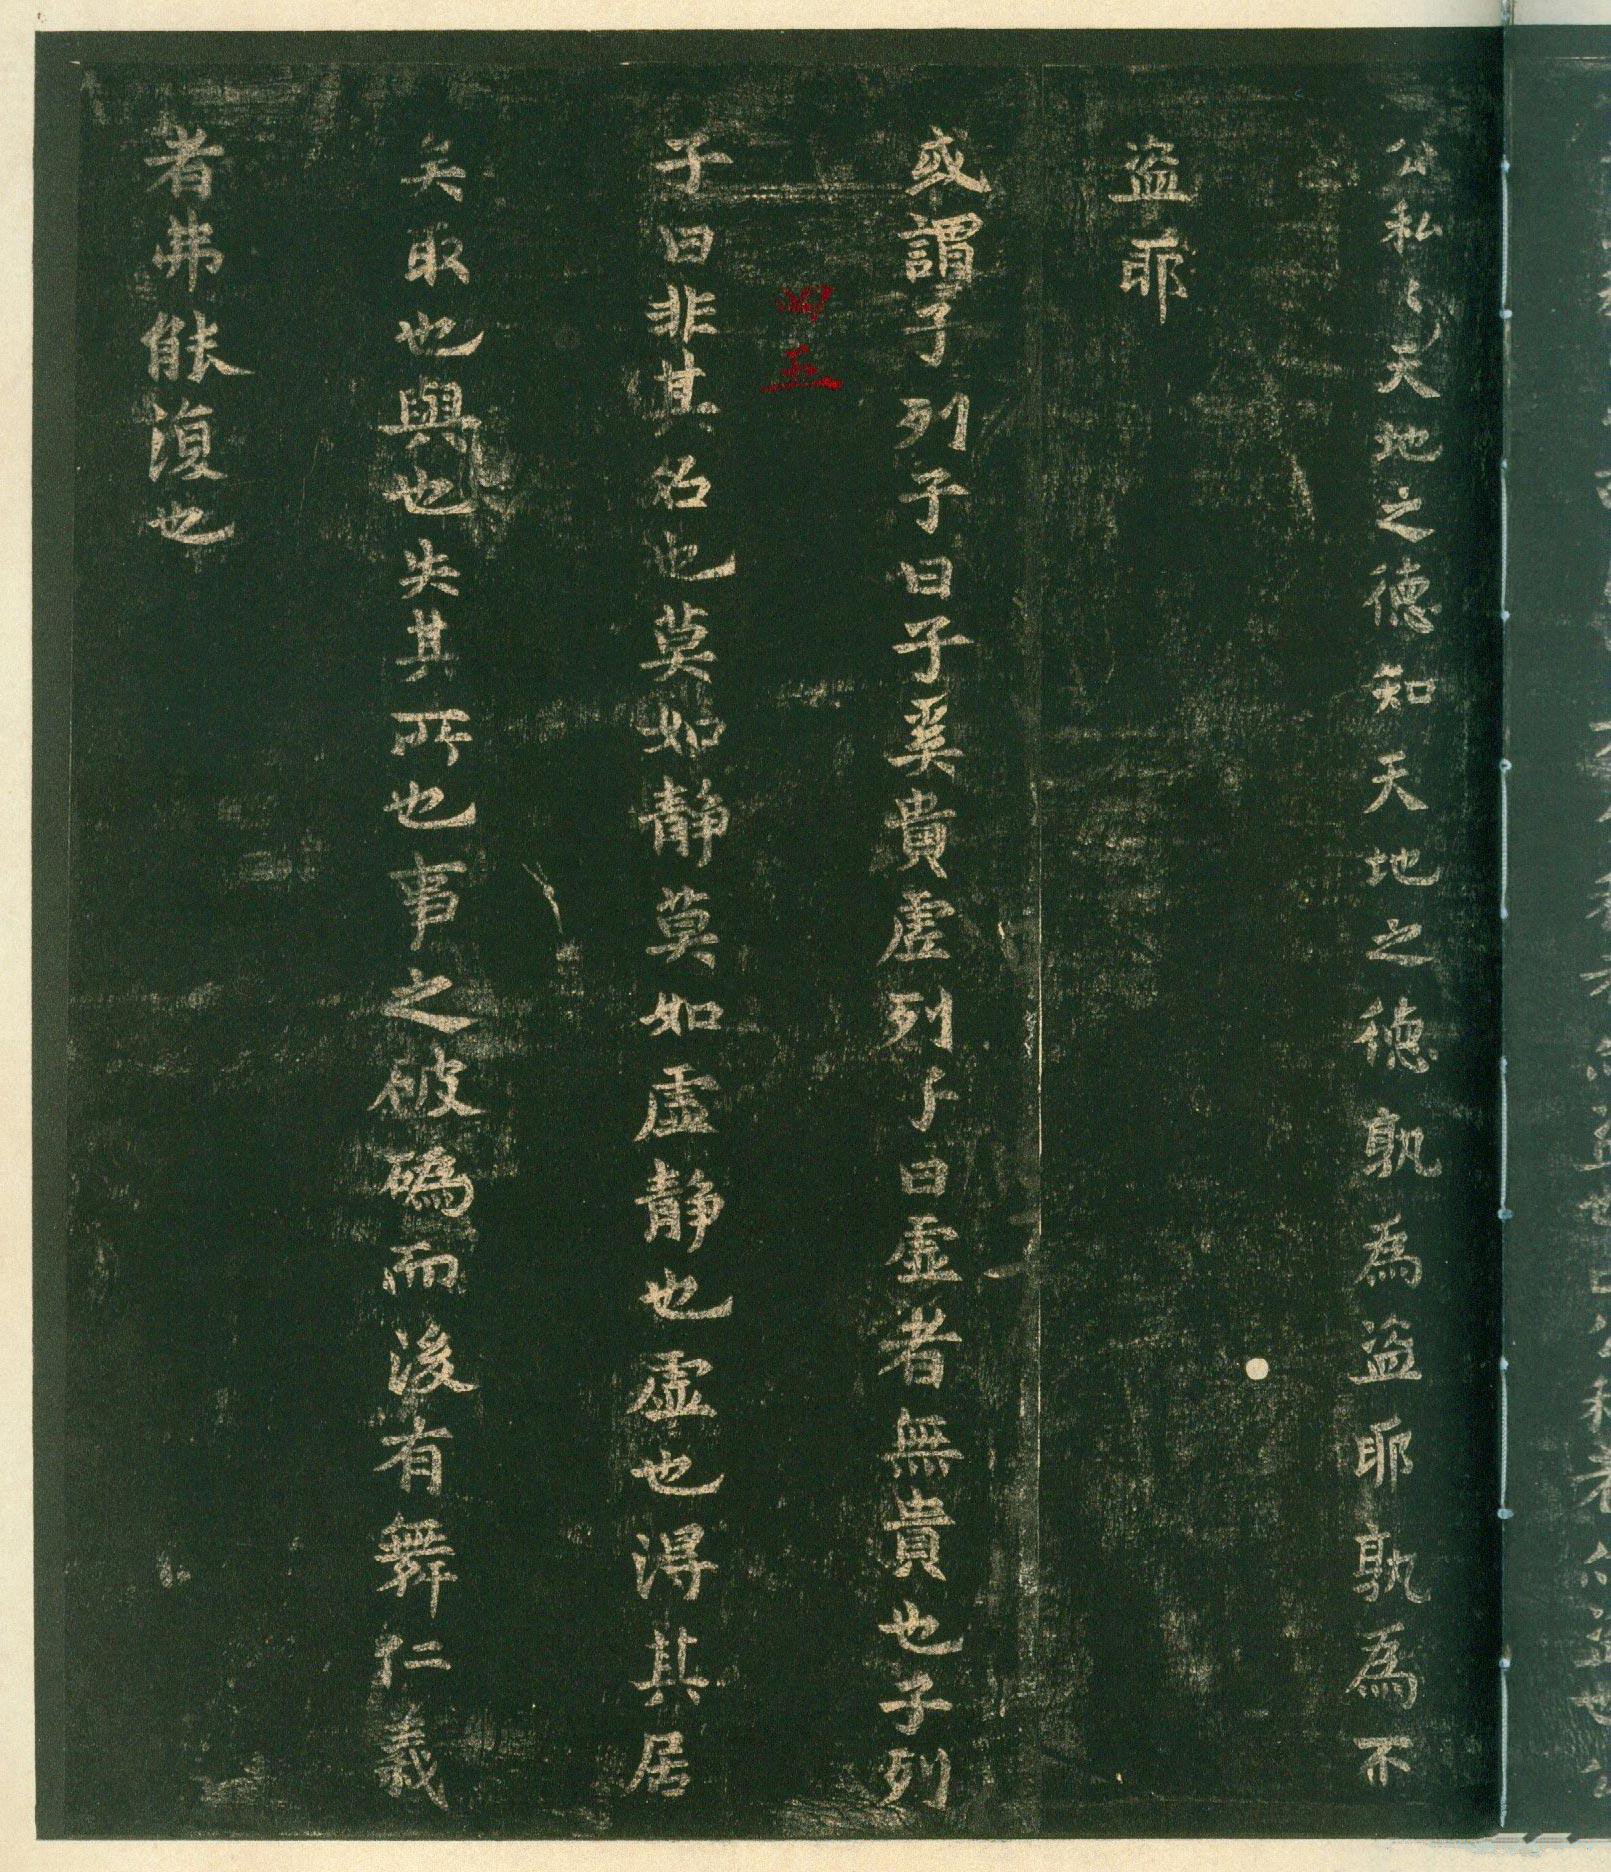 公私々天地之德知天地之德孰為盜耶孰為不
盜耶
或謂子列子曰子奚貴虛列子曰虛者無貴也子列
子曰非其名也莫如靜莫如虛靜也虛也得其居
矣取也與也失其所也事之破䃣而後有舞仁義
者弗能復也
五